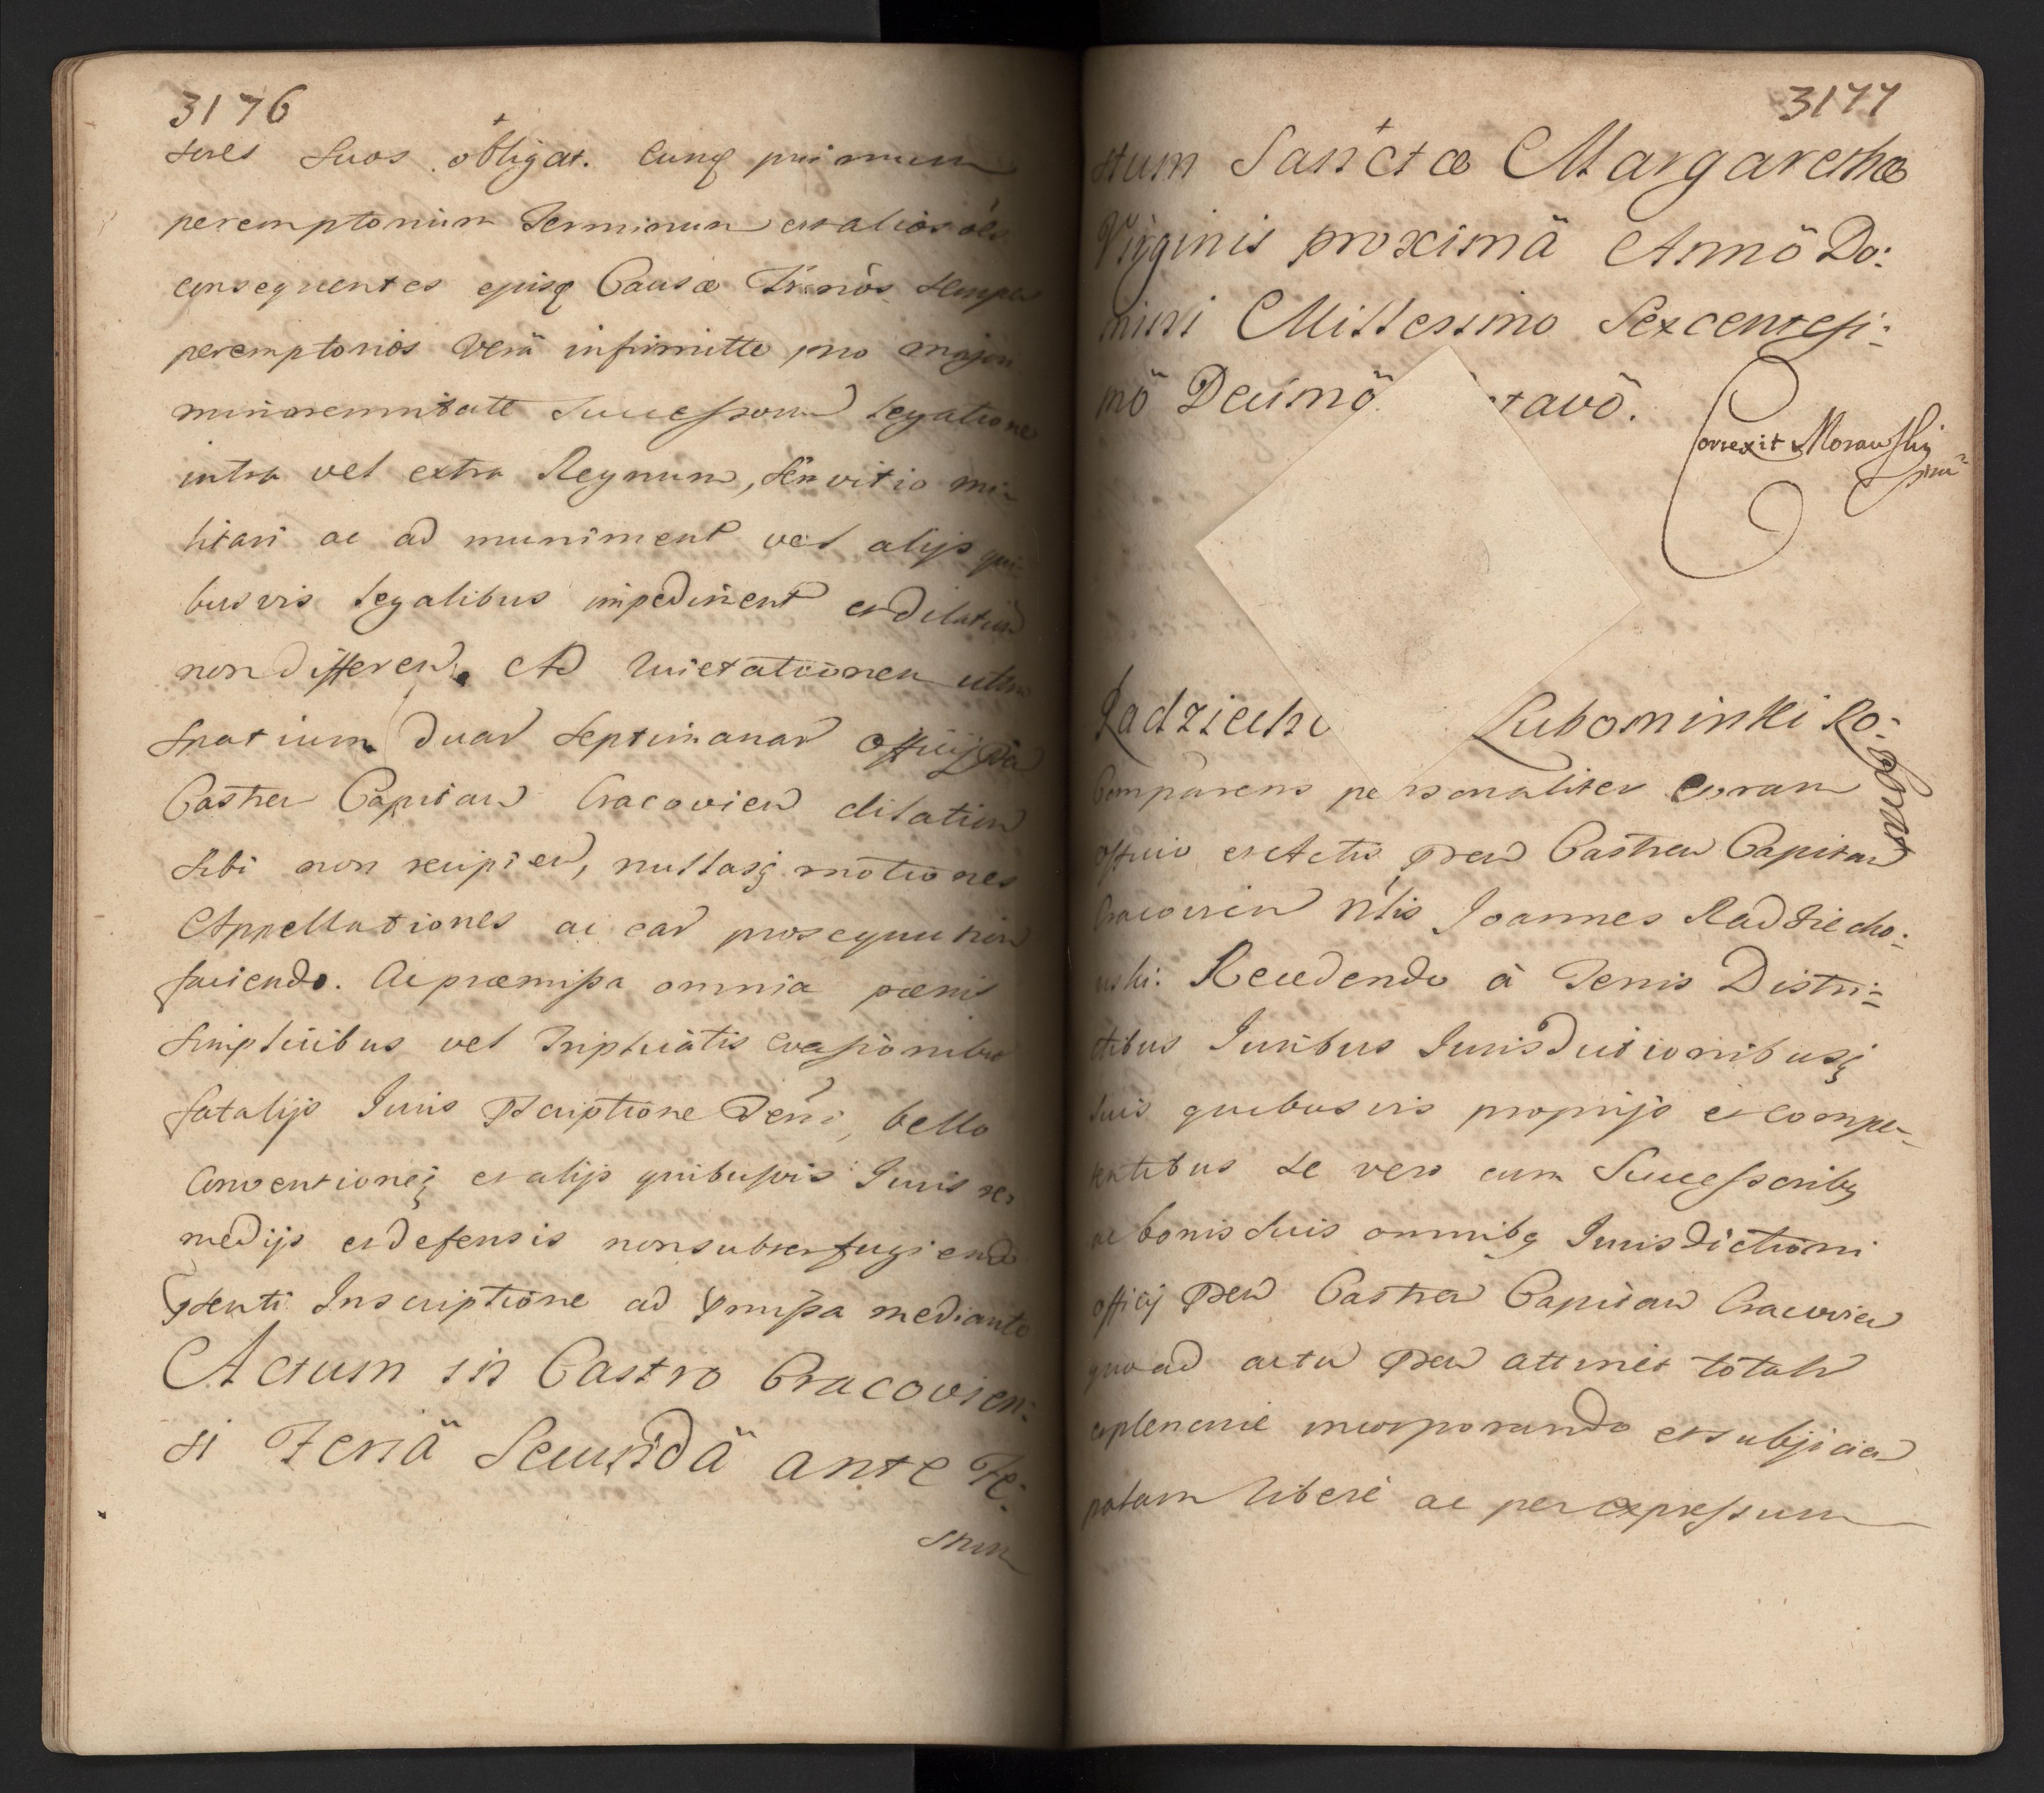 3176
sores suos obligat. Cunq primum
peremptorium Terminum et alios oēs
consequentes ejusq Causæ Trnos semper
peremptorios Verâ infirmitte pro majori
minorennitate Successorum legatione
intra vel extra Regnum, servitio mi-
litari ac ad muniment vel alijs qui-
busvis legalibus impediment et dilation
non differen. Ad quietationem
spatium duar septimanar Officij
Castren Capitan Cracovien dilation
sibi non recipien, nullasq motiones
Appellationes ac ear prosequution
faciendo. Ac præmissa omnia pænis
simplicibus vel Triplicatis evasionibus
fatalijs Juris Pscriptione Terri, bello
Conventioneq et alijs quibusvis Juris re-
medijs et defensis non subterfugiendo
Pdenti Inscriptione ad Pmissa mediante
Actum in Castro Cracovien:
si Feriâ Secundâ ante Fe:
stum
3177
stum Sanctæ Margarethæ
Virginis proximâ Annô Do:
mini Millessimo Sexcentesi:
mô Decimô tavô.
Correxit Morawskij
mu
Radziech Lubominski Ro:
boruje
Comparens personaliter coram
Officio et Actis Psen Castren Capitan
Cracovien Nlis Joannes Radziecho:
wski. Recedendo â Terris Distri:
ctibus Juribus Jurisdictionibusq
suis quibusvis proprijs et compe-
tentibus se vero cum Successoribq
ac bonis suis omnibq Jurisdictioni
officij Psen Castren Capitan Cracovien
quoad actu Psen attinet totali
ac plenarie incorporando et subijcien
palam libere ac per expressum